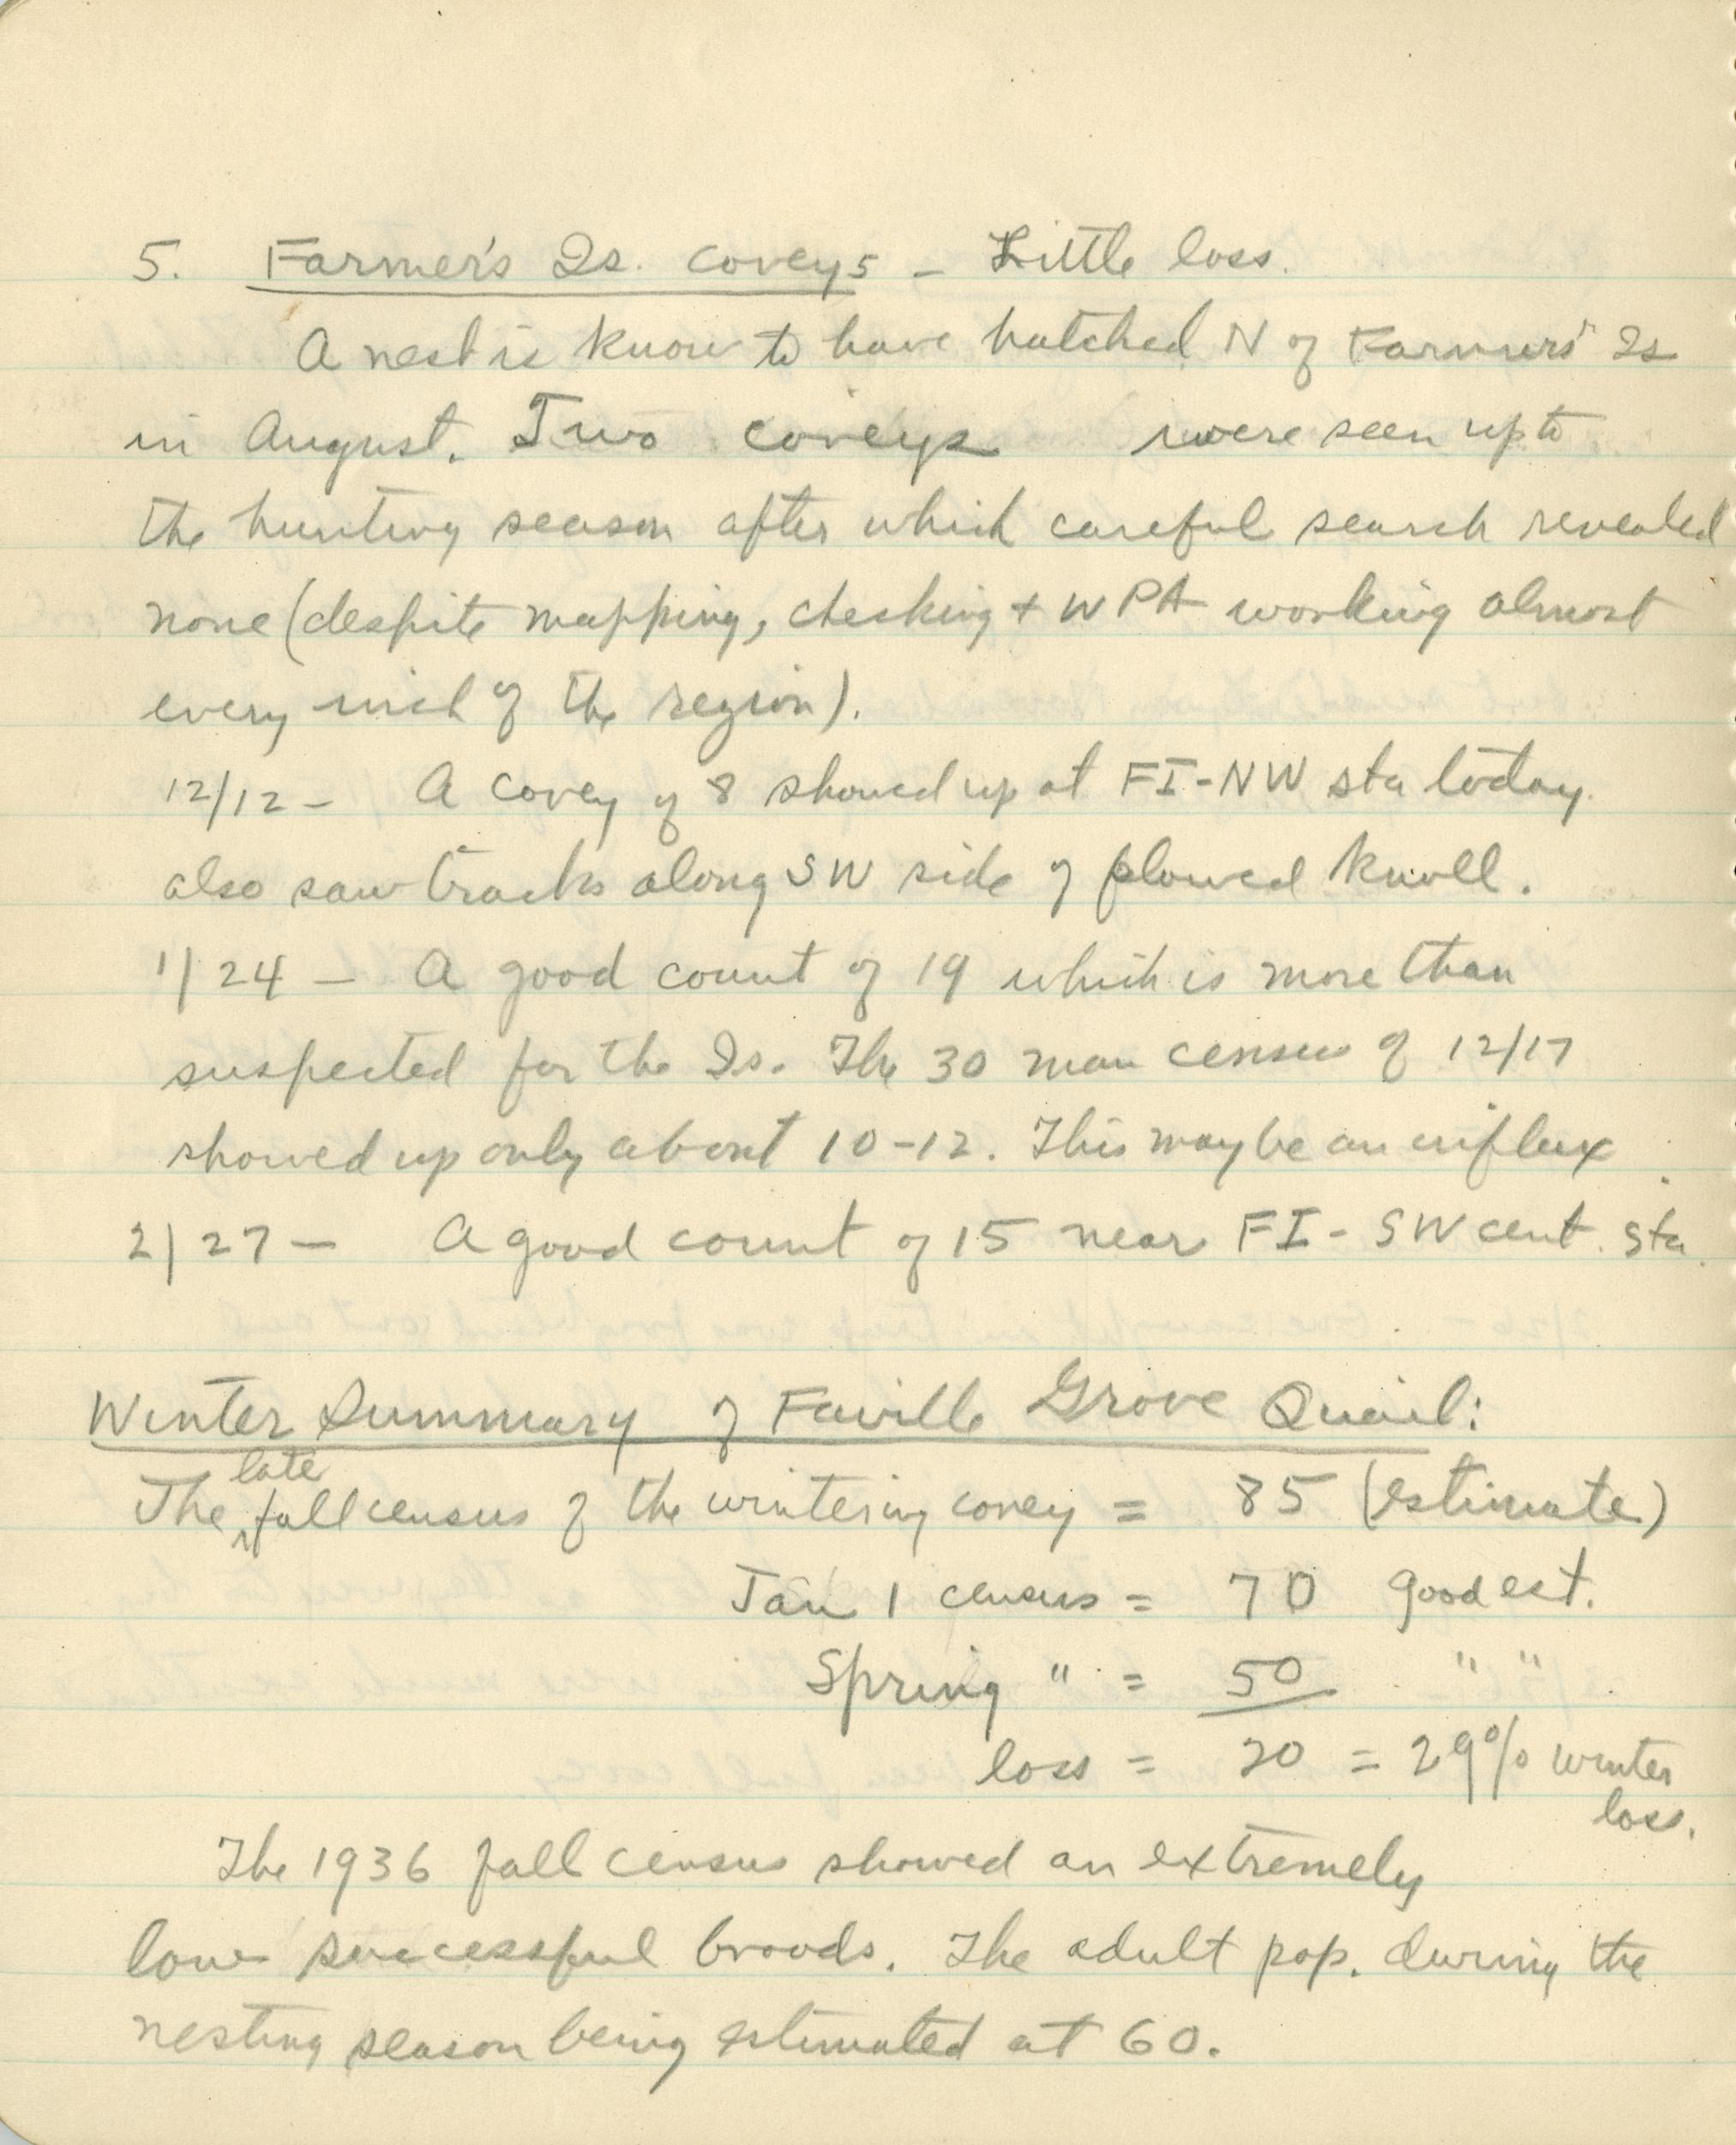 5. Farmer's Is. coveys - Little loss.
A nest is know to have hatched N of Farmers' Is
in August. Two coveys were seen up to
the hunting season after which careful search revealed
none (despite mapping, checking + WPA working almost
every inch of the region).
12/12 - A covey of 8 showed up at FI-NW sta today.
also saw tracks along SW side of plowed knoll.
1/24 - A good count of 19 which is more than
suspected for the Is. The 30 man census of 12/17
showed up only about 10-12. This may be an influx.
2/27 - A good count of 15 near FI - SW cent. sta.
Winter Summary of Faville Grove Quail:
The late fall census of the wintering covey = 85 (estimate)
Jan 1 census = 70 good est.
Spring " = 50 " "
loss = 20 = 29% winter
loss.
The 1936 fall census showed an extremely
low successful broods. The adult pop. during the
nesting season being estimated at 60.